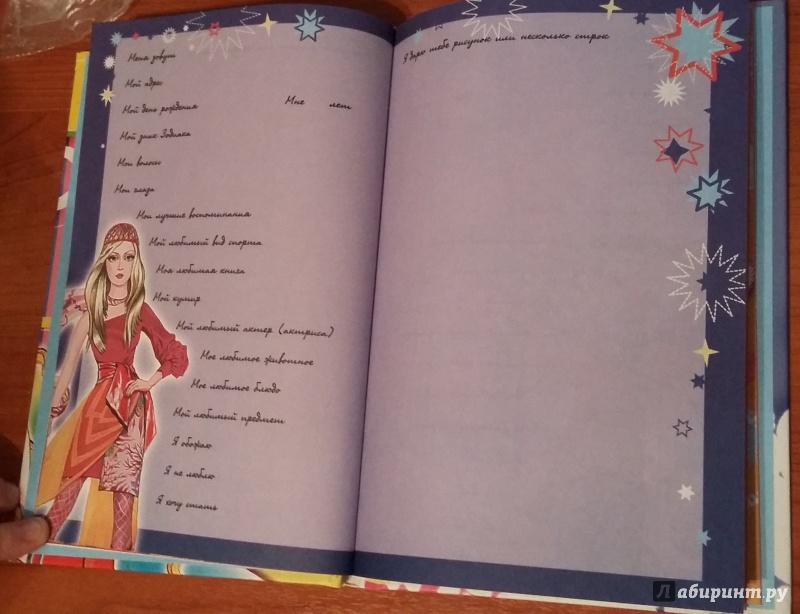 Меня зовут
Мой адрес
Мой день рождения Мне лет
Мой знак Зодиака
Мои волосы
Мои глаза
Мои лучшие воспоминания
Мой любимый вид спорта
Моя любимая книга
Мой кумир
Мой любимый актер (актриса)
Мое любимое животное
Мое любимое блюдо
Мой любимый предмет
Я обожаю
Я не люблю
Я хочу стать
Я дарю тебе рисунок или несколько строк
Лабиринт.ру